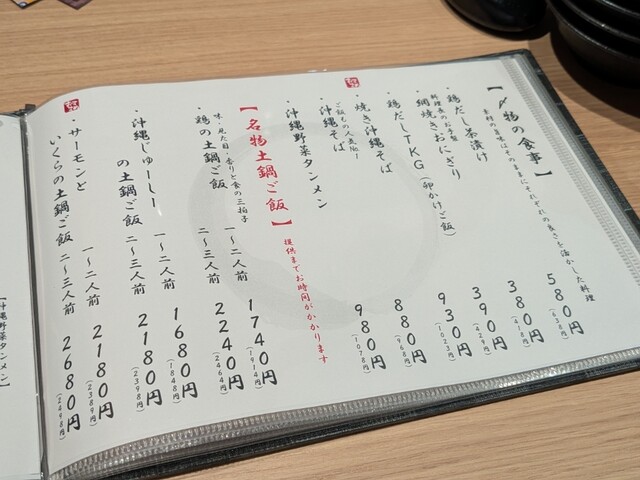 【〆物の食事】
素材の美味はそのままにそれぞれの良さを活かした料理
・鶏だし茶漬け 580円(638円)
料理長のお手製
・網焼きおにぎり 380円(418円)
・鶏だしTKG(卵かけご飯) 390円(429円)
・焼き沖縄そば 930円(1023円)
・沖縄そば 880円(968円)
・沖縄野菜タンメン 980円(1078円)
【名物土鍋ご飯】提供までお時間がかかります
味・見た目・香りと食の三拍子
・鶏の土鍋ご飯 一〜二人前 1740円(1914円)
二〜三人前 2240円(2464円)
・沖縄じゅーしー 一〜二人前 1680円(1848円)
の土鍋ご飯 二〜三人前 2180円(2398円)
・サーモンと 一〜二人前 2180円(2389円)
いくらの土鍋ご飯 二〜三人前 2680円(2498円)
【沖縄野菜タンメン】